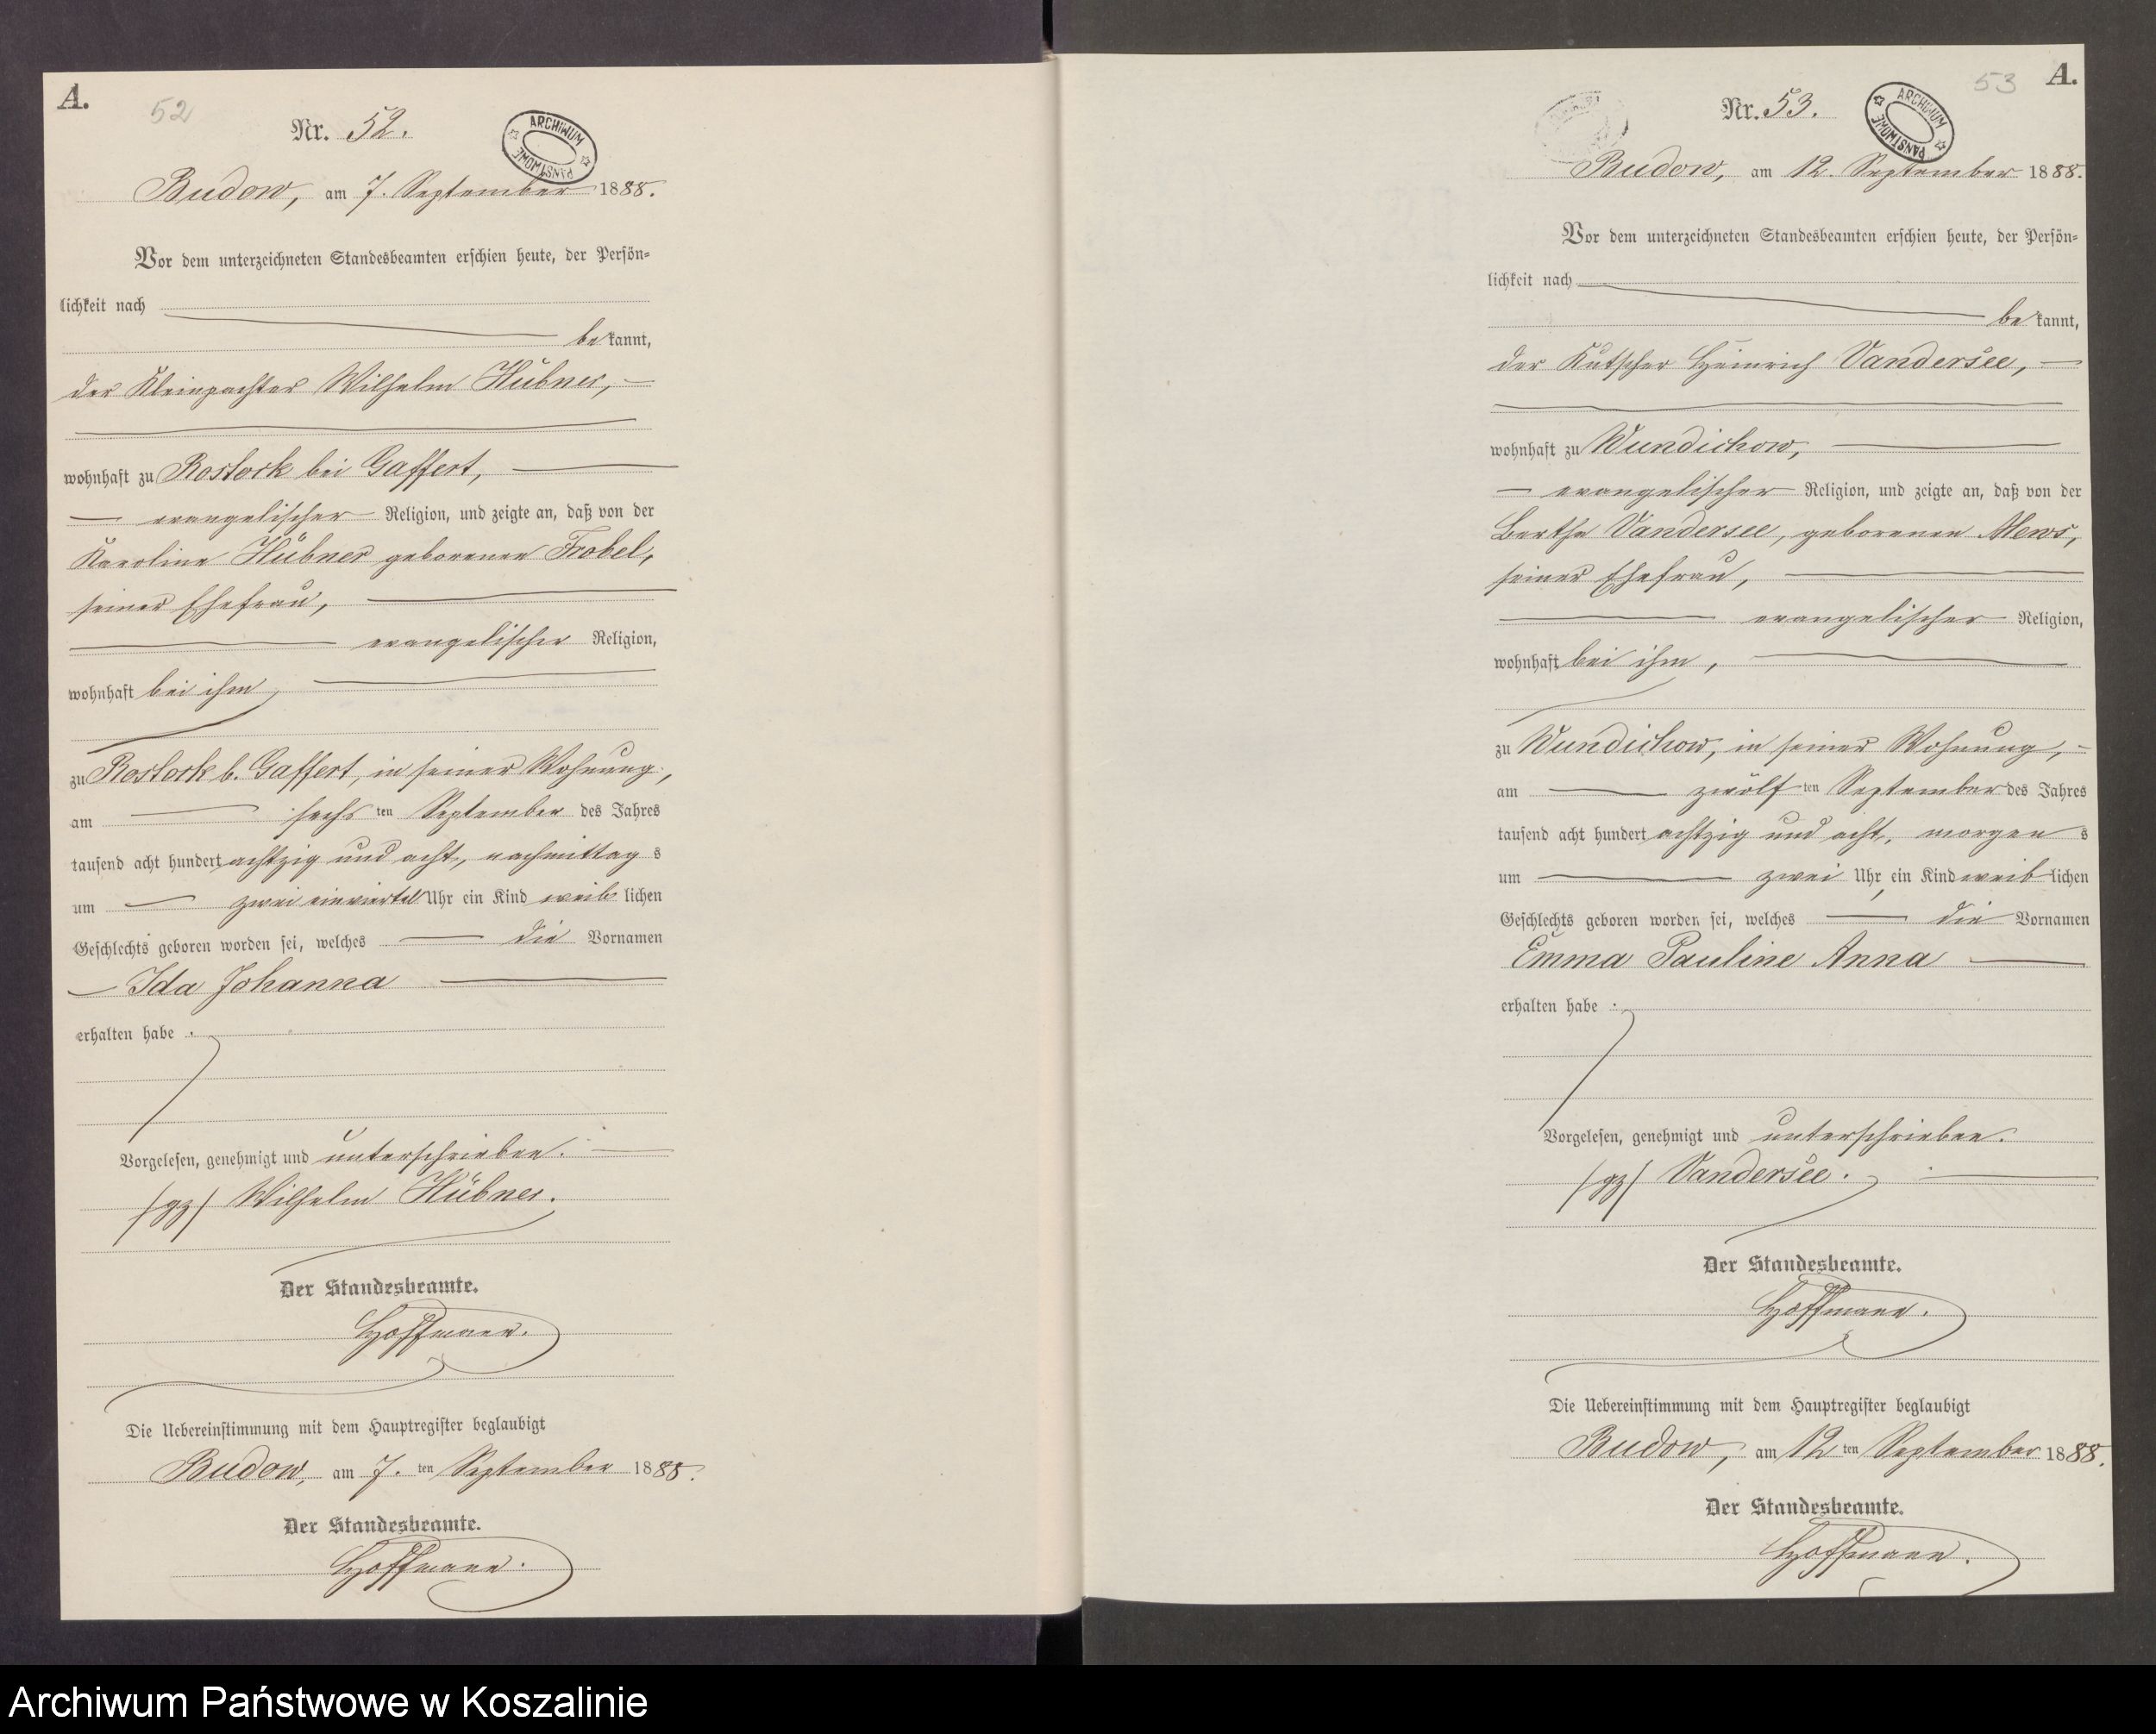 A.
52
Nr. 52.
ARCHIWUM PAŃSTWOWE
Budow, am 7. September 1888.
Vor dem unterzeichneten Standesbeamten erschien heute, der Persön-
lichkeit nach
bekannt,
der Kleinpachter Wilhelm Hübner,
wohnhaft zu Rostock bei Gaffert,
evangelischer Religion, und zeigte an, daß von der
Karoline Hübner geborenen Frobel,
seiner Ehefrau,
evangelischer Religion,
wohnhaft bei ihm,
zu Rostock b. Gaffert, in seiner Wohnung,
am sechsten September des Jahres
tausend acht hundert achtzig und acht, nachmittags
um zwei einviertel Uhr ein Kind weiblichen
Geschlechts geboren worden sei, welches die Vornamen
Ida Johanna
erhalten habe.
Vorgelesen, genehmigt und unterschrieben.
/gz/ Wilhelm Hübner.
Der Standesbeamte.
Hoffmann.
Die Uebereinstimmung mit dem Hauptregister beglaubigt
Budow, am 7. ten September 1888.
Der Standesbeamte.
Hoffmann.
53
A.
Nr. 53.
ARCHIWUM PAŃSTWOWE
Budow, am 12. September 1888.
Vor dem unterzeichneten Standesbeamten erschien heute, der Persön-
lichkeit nach
bekannt,
der Kutscher Heinrich Vandersee,
wohnhaft zu Wundichow,
evangelischer Religion, und zeigte an, daß von der
Bertha Vandersee, geborenen Mews,
seiner Ehefrau,
evangelischer Religion,
wohnhaft bei ihm,
zu Wundichow, in seiner Wohnung,
am zwölften September des Jahres
tausend acht hundert achtzig und acht, morgens
um zwei Uhr, ein Kind weiblichen
Geschlechts geboren worden sei, welches die Vornamen
Emma Pauline Anna
erhalten habe.
Vorgelesen, genehmigt und unterschrieben.
/gz/ Vandersee.
Der Standesbeamte.
Hoffmann.
Die Uebereinstimmung mit dem Hauptregister beglaubigt
Budow, am 12 ten September 1888.
Der Standesbeamte.
Hoffmann.
Archiwum Państwowe w Koszalinie